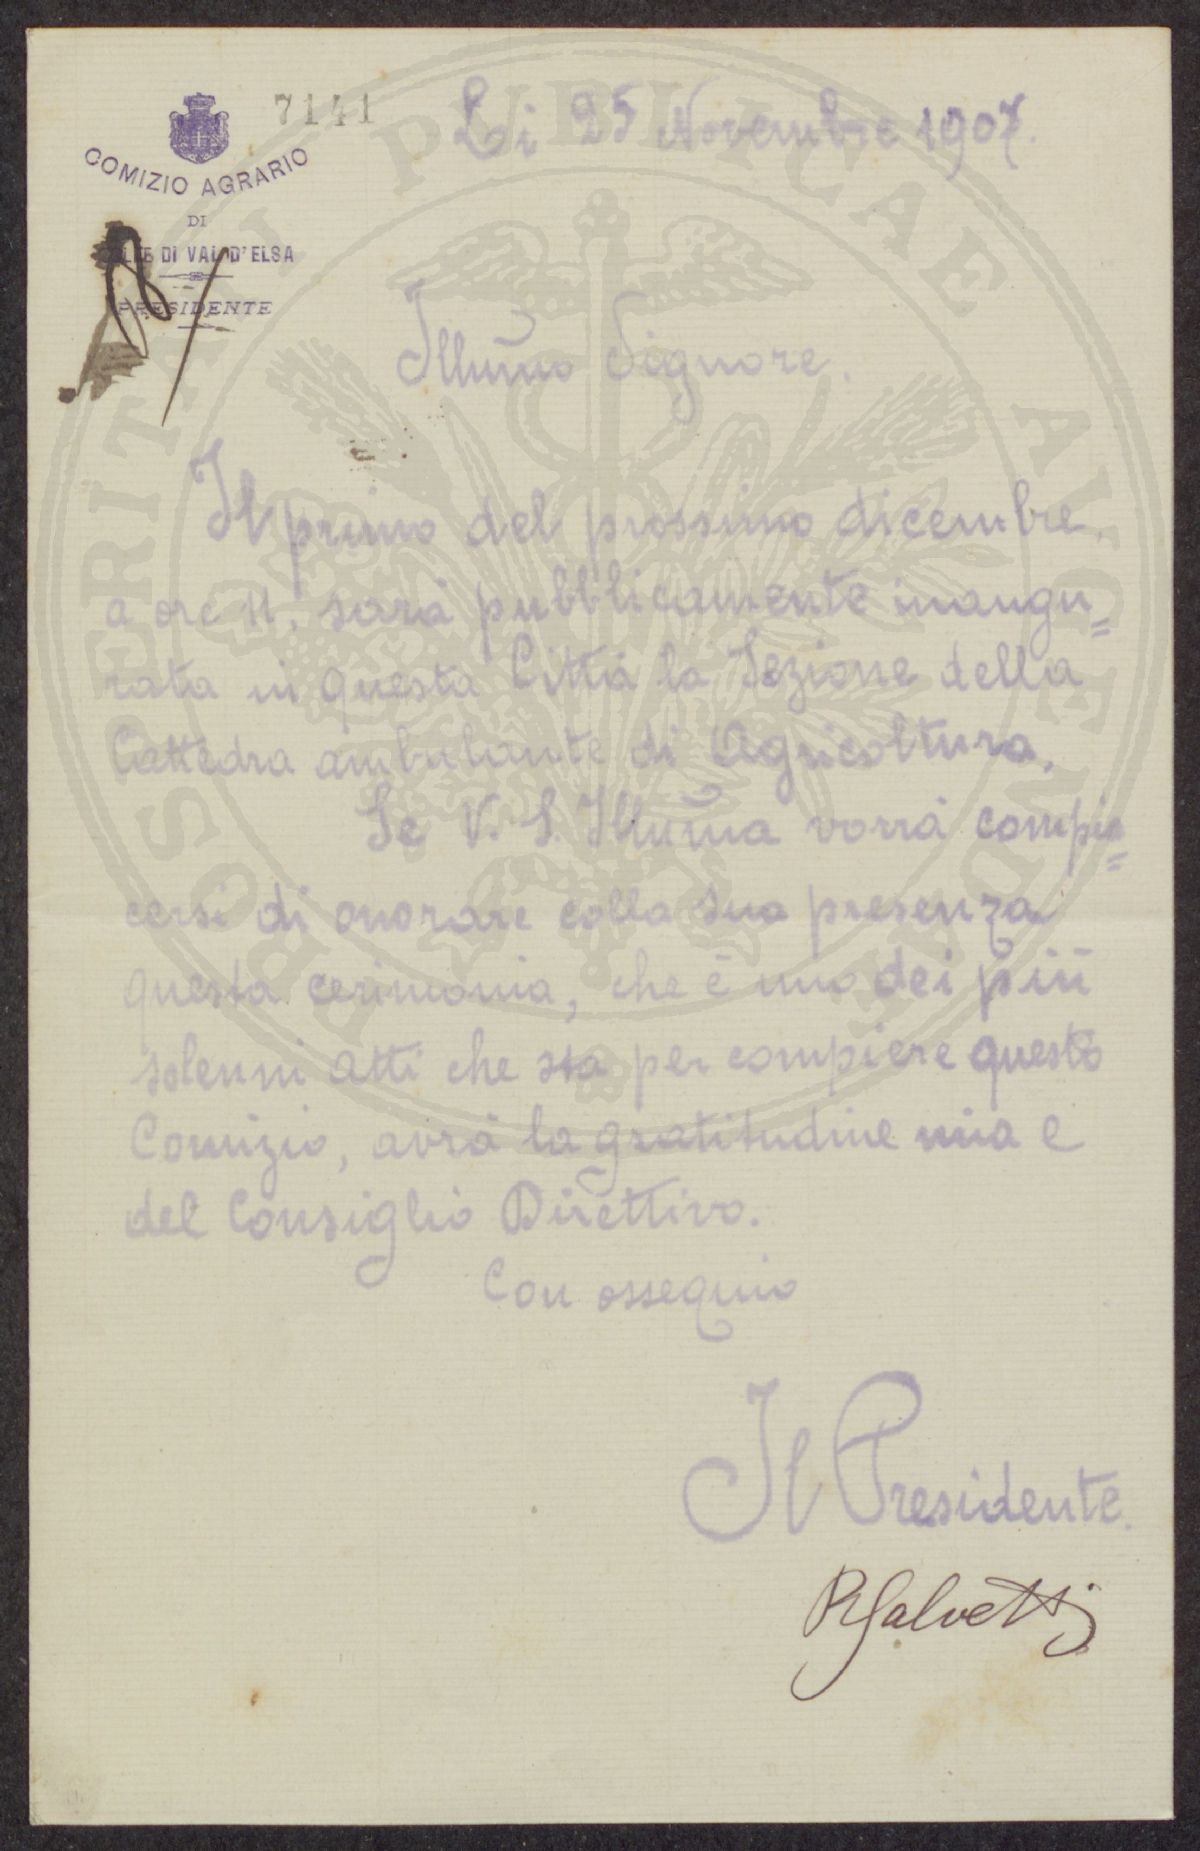 7141
Li 25 Novembre 1907.
COMIZIO AGRARIO
DI
COLLE DI VAL D'ELSA
PRESIDENTE
Illumo Signore.
Il primo del prossimo dicembre,
a ore 11, sarà pubblicamente inaugu=
rata in questa Città la Sezione della
Cattedra ambulante di Agricoltura.
Se V. S. Illuma vorrà compia=
cersi di onorare colla sua presenza
questa cerimonia, che è uno dei più
solenni atti che sta per compiere questo
Comizio, avrà la gratitudine mia e
del Consiglio Direttivo.
Con ossequio
Il Presidente.
R Salvetti
PROSPERITATI PUBLICAE AVGENDAE